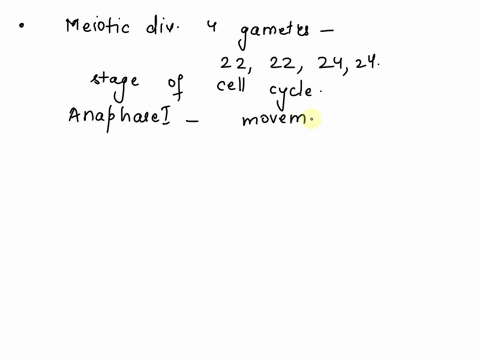 • Meiotic div. 4 gametes –
22, 22, 24, 24.
stage of cell cycle.
Anaphase I – movem